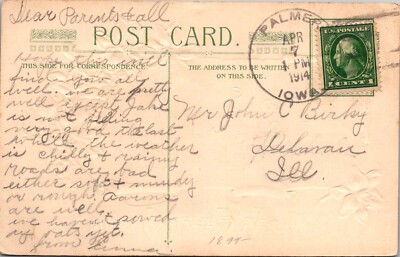 Dear Parents & all
POST CARD
THIS SIDE FOR CORRESPONDENCE
THE ADDRESS TO BE WRITTEN
ON THIS SIDE.
PALMER
APR
7
PM
1914
IOWA
U.S. POSTAGE
1 CENT 1
find you all
well. we are pretty
well except Jake
is not feeling
very good the last
while. the weather
is chilly & raining
roads are bad
either soft & muddy
or rough. Aarons
are well
we haven't sowed
any oats yet.
from Emma
Mr John C Birky
Delavan
Ill.
1895